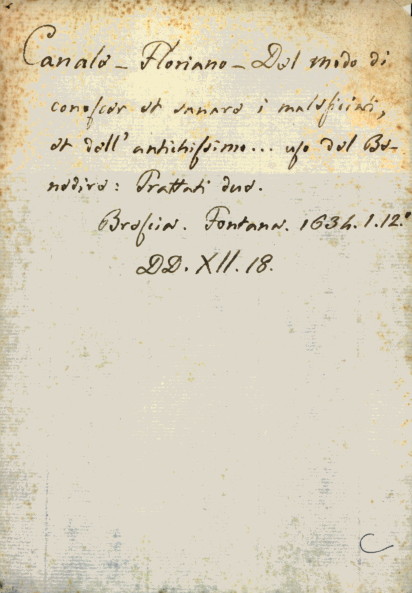 Canale - Floriano - Del modo di
conoscer et sanare i maleficiati,
et dell' antichissimo... uso del Be-
nedire: Trattati due.
Brescia. Fontana. 1634. 1. 12.°
DD. XII. 18.
C